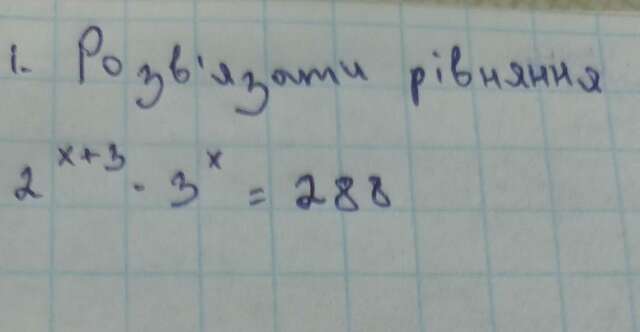 1. Розв'язати рівняння
2^{x+3} · 3^x = 288